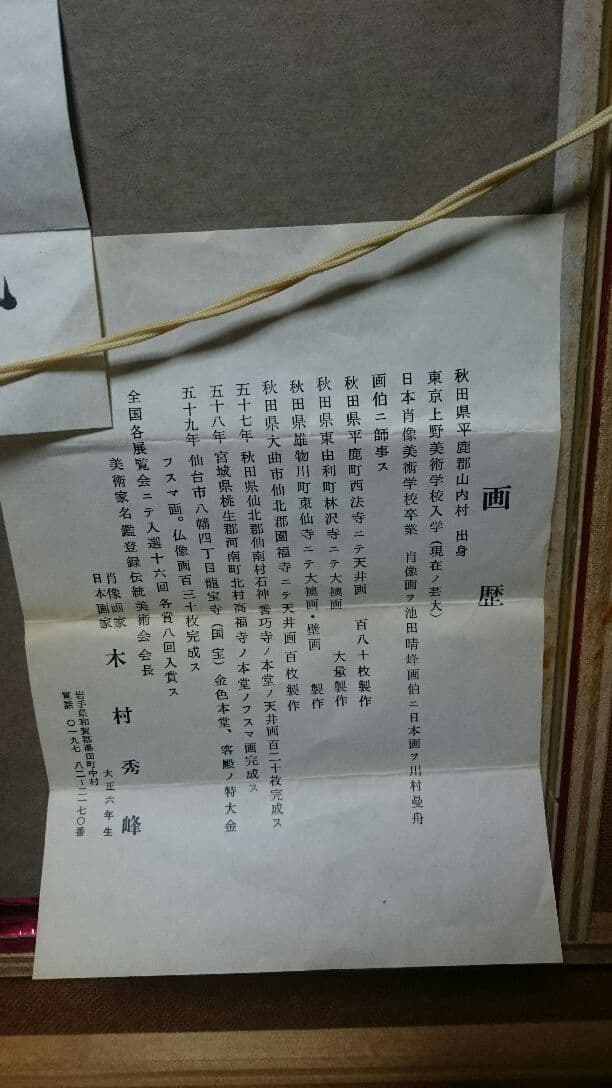 画歴
秋田県平鹿郡山内村 出身
東京上野美術学校入学(現在ノ芸大)
日本肖像美術学校卒業 肖像画ヲ池田晴峰画伯ニ日本画ヲ川村曼舟
画伯ニ師事ス
秋田県平鹿町西法寺ニテ天井画 百八十枚製作
秋田県東由利町林沢寺ニテ大襖画 大量製作
秋田県雄物川町東仙寺ニテ大襖画・壁画 製作
秋田県大曲市仙北郡園福寺ニテ天井画 百枚製作
五十七年 秋田県仙北郡仙南村石神善巧寺ノ本堂ノ天井画百二十枚完成ス
五十八年 宮城県桃生郡河南町北村斎福寺ノ本堂ノフスマ画完成ス
五十九年 仙台市八幡四丁目龍宝寺(国宝)金色本堂、客殿ノ特大金
フスマ画。仏像画百三十枚完成ス
全国各展覧会ニテ入選十六回 各賞八回入賞ス
美術家名鑑登録伝統美術会会長
肖像画家
日本画家 木村秀峰
大正六年生
岩手県和賀郡湯田町中村
電話 〇一九七 八二―二一七〇番